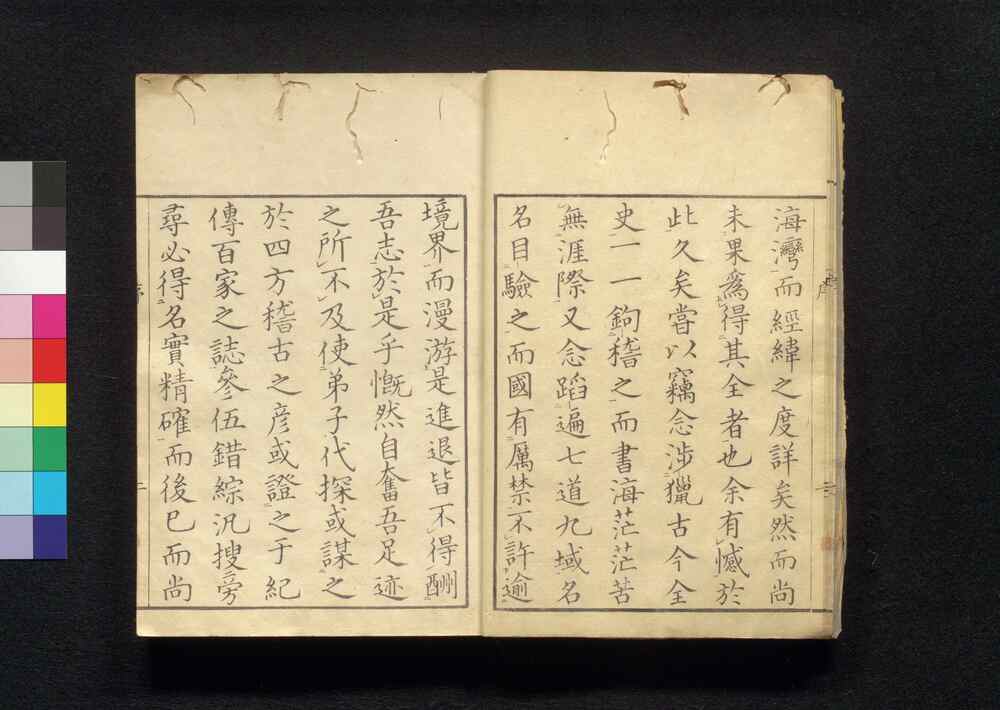 海灣而經緯之度詳矣然而尚
未果爲得其全者也余有憾於
此久矣嘗以竊念涉獵古今全
史一一鉤稽之而書海茫茫苦
無涯際又念蹈遍七道九域名
名目驗之而國有厲禁不許逾
境界而漫游是進退皆不得酬
吾志於是乎慨然自奮吾足迹
之所不及使弟子代探或謀之
於四方稽古之彦或證之于紀
傳百家之誌參伍錯綜汎搜旁
尋必得名實精確而後已而尚